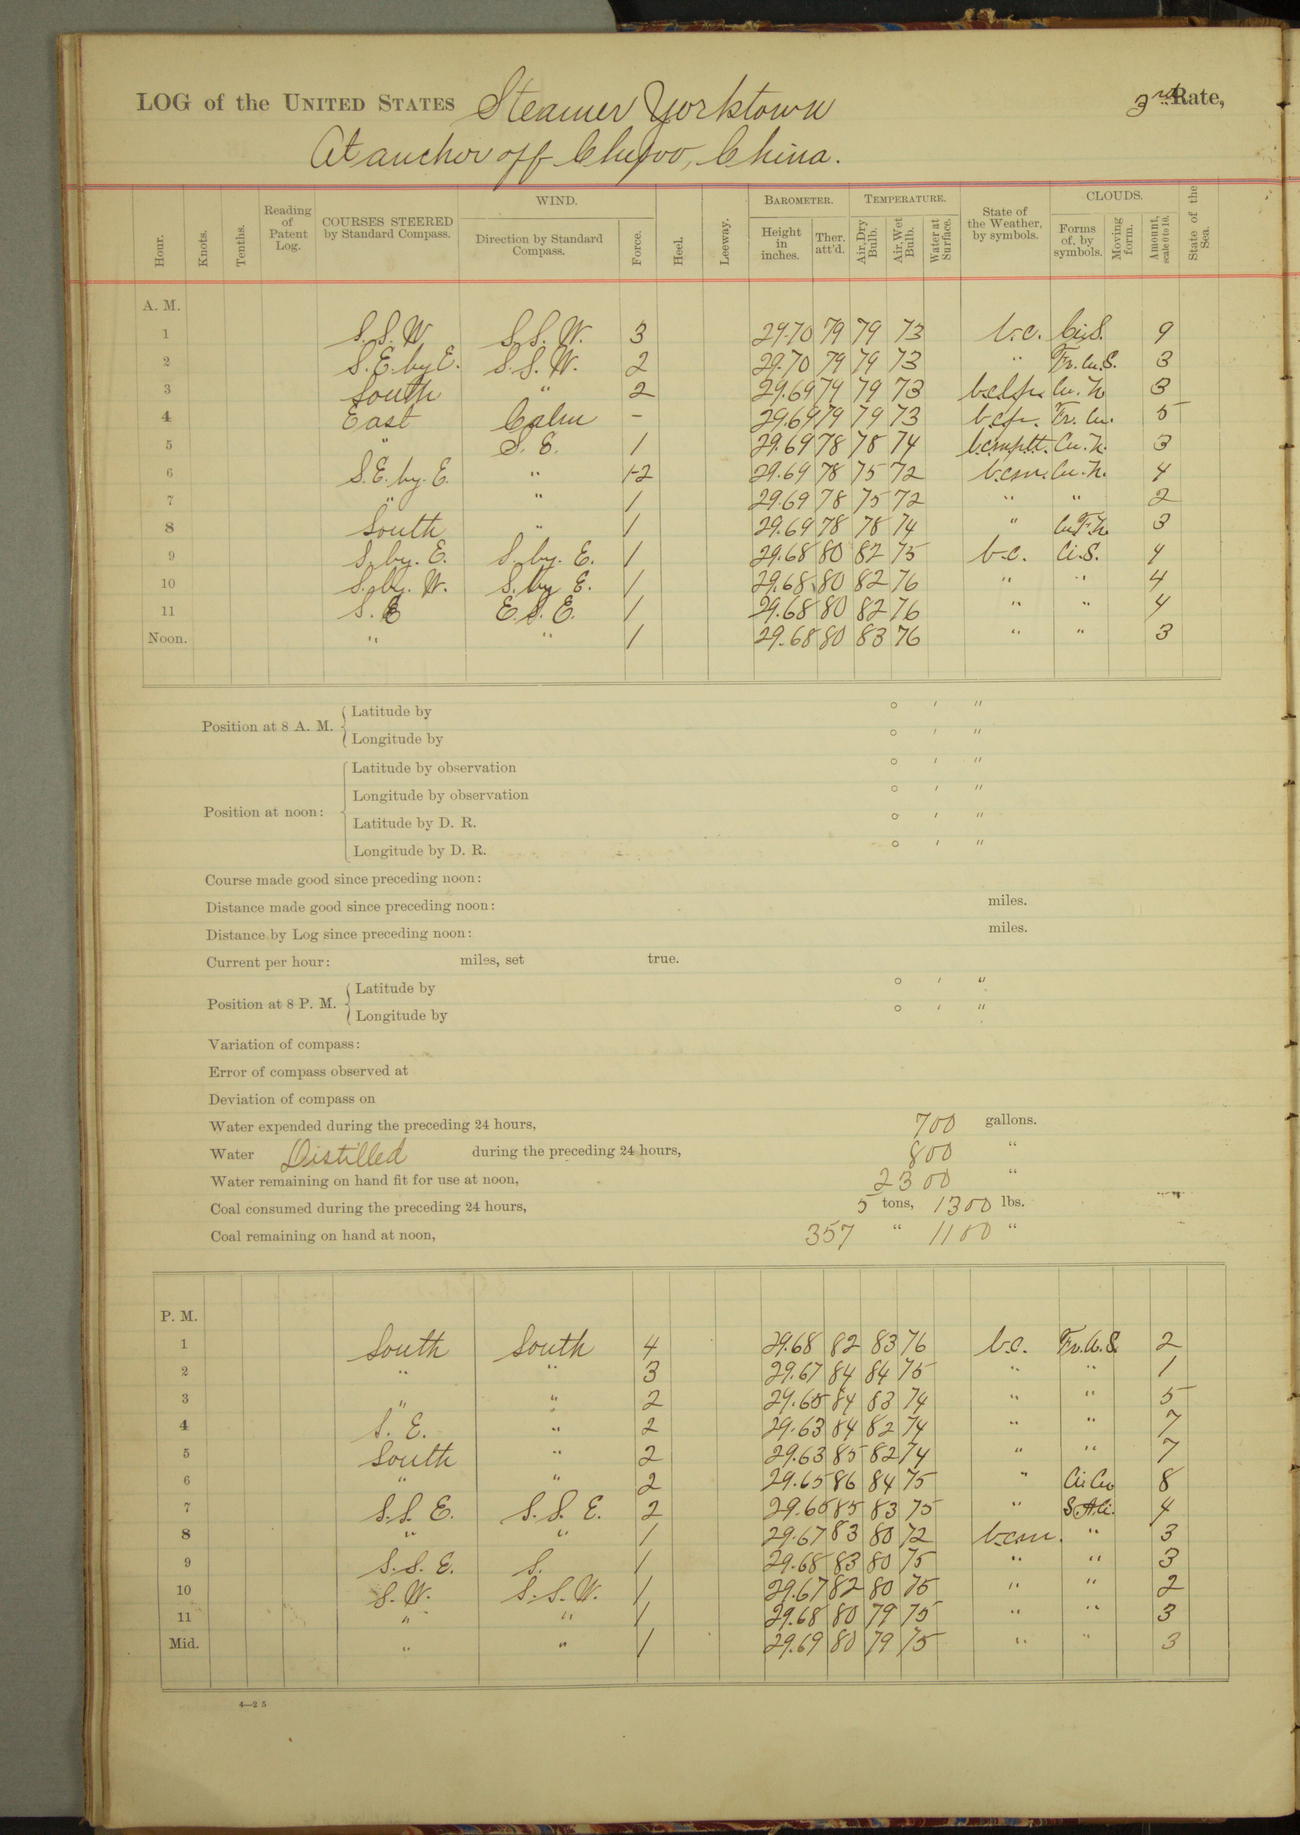 LOG of the UNITED STATES Steamer Yorktown 3rd Rate,
At anchor off Chefoo, China.
Hour. Knots. Tenths. Reading of Patent Log. COURSES STEERED by Standard Compass. WIND. Direction by Standard Compass. Force. Heel. Leeway. BAROMETER. Height in inches. Ther. att'd. TEMPERATURE. Air, Dry Bulb. Air, Wet Bulb. Water at Surface. State of the Weather, by symbols. CLOUDS. Forms of, by symbols. Moving form. Amount, scale 0 to 10. State of the Sea.
A. M.
1 S.S.W S.S.W. 3 29.70 79 79 73 b.c. Ci.S. 9
2 S.E. by E. S.S.W. 2 29.70 79 79 73 " Fr.Cu.S. 3
3 South " 2 29.69 79 79 73 Cu. N. 3
4 East Calm - 29.69 79 79 73 Fr. Cu. 5
5 " S.E. 1 29.69 78 78 74 Cu. N. 3
6 S.E. by. E. " 1-2 29.69 78 75 72 b.c.m. Cu. N. 4
7 " " 1 29.69 78 75 72 " " 2
8 South " 1 29.69 78 78 74 " 3
9 S. by. E. S. by. E. 1 29.68 80 82 75 b.c. Ci.S. 4
10 S. by. W. S. by E. 1 29.68 80 82 76 " " 4
11 S. E E.S.E. 1 29.68 80 82 76 " " 4
Noon. " " 1 29.68 80 83 76 " " 3
Position at 8 A. M. Latitude by ° ′ ″
Longitude by ° ′ ″
Position at noon: Latitude by observation ° ′ ″
Longitude by observation ° ′ ″
Latitude by D. R. ° ′ ″
Longitude by D. R. ° ′ ″
Course made good since preceding noon:
Distance made good since preceding noon: miles.
Distance by Log since preceding noon: miles.
Current per hour: miles, set true.
Position at 8 P. M. Latitude by ° ′ ″
Longitude by ° ′ ″
Variation of compass:
Error of compass observed at
Deviation of compass on
Water expended during the preceding 24 hours, 700 gallons.
Water Distilled during the preceding 24 hours, 800 "
Water remaining on hand fit for use at noon, 2300 "
Coal consumed during the preceding 24 hours, 5 tons, 1300 lbs.
Coal remaining on hand at noon, 357 " 1100 "
P. M.
1 South South 4 29.68 82 83 76 b.c. Fr.Cu.S 2
2 " " 3 29.67 84 84 75 " " 1
3 " " 2 29.65 84 83 74 " " 5
4 S. E. " 2 29.63 84 82 74 " " 7
5 South " 2 29.63 85 82 74 " " 7
6 " " 2 29.65 86 84 75 " Ci.Cu 8
7 S.S.E. S.S.E. 2 29.65 85 83 75 " 4
8 " " 1 29.67 83 80 72 b.c.m. " 3
9 S.S.E. S. 1 29.68 83 80 75 " " 3
10 S.W. S.S.W. 1 29.67 82 80 75 " " 2
11 " " 1 29.68 80 79 75 " " 3
Mid. " " 1 29.69 80 79 75 " " 3
4—2 5